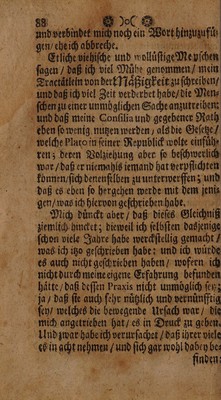 88
und verbindet mich noch ein Wort hinzuzufü⸗
gen/ ehe ich abbreche.
Etliche viehische und wollüstige Menschen
sagen/ daß ich viel Mühe genommen/ mein
Tractätlein von der Mäßigkeit zu schreiben/
und daß ich viel Zeit verderbet habe/ die Men⸗
schen zu einer unmöglichen Sache anzutreiben;
und daß meine Consilia und gegebener Rath
eben so wenig nutzen werden/ als die Gesetze/
welche Plato in seiner Republick wolte einfüh⸗
ren; deren Volziehung aber so beschwerlich
war/ daß er niemahls iemand hat verpflichten
können/ sich denenselben zu unterwerffen; und
daß es eben so hergehen werde mit dem jeni⸗
gen/ was ich hiervon geschrieben habe.
Mich düncket aber/ daß dieses Gleichniß
ziemlich hincket; dieweil ich selbsten dasjenige
schon viele Jahre habe werckstellig gemacht/
was ich itzo geschrieben habe; und ich würde
es auch nicht geschrieben haben/ wofern ich
nicht durch meine eigene Erfahrung befunden
hätte/ daß dessen Praxis nicht unmöglich sey;
ja/ daß sie auch sehr nützlich und vernünfftig
sey/ welches die bewegende Ursach war/ die
mich angetrieben hat/ es in Druck zu geben.
Und zwar habe ich verursachet/ daß ihrer viele
es in acht nehmen/ und sich gar wohl dabey be⸗
finden: